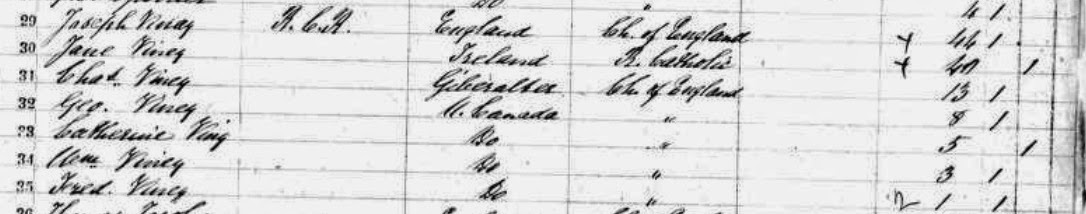 Do " 41.
29 Joseph Viney R.C.R. England Ch. of England + 44 1
30 Jane Viney Ireland R. Catholic + 40 1
31 Chas. Viney Giberalter Ch. of England 13 1
32 Geo. Viney U. Canada " 8 1
33 Catherine Viney Do " 5 1
34 Wm Viney Do " 3 1
35 Fred. Viney Do " 2 1 1